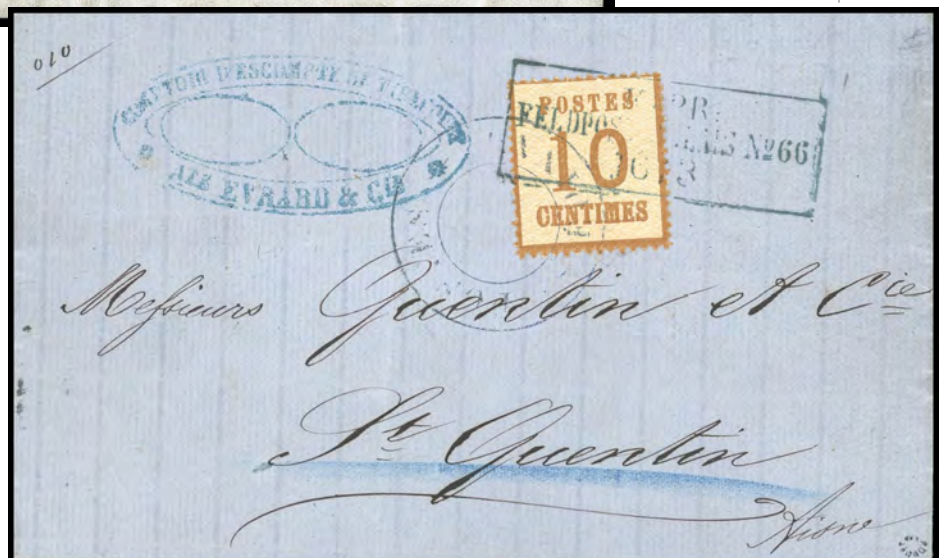 010
COMPTOIR D'ESCOMPTE DE
ALX EVRARD & CIE
POSTES
10
CENTIMES
K. PR.
FELDPOST RELAIS Nº 66
Messieurs Quentin et Cie
St Quentin
Aisne